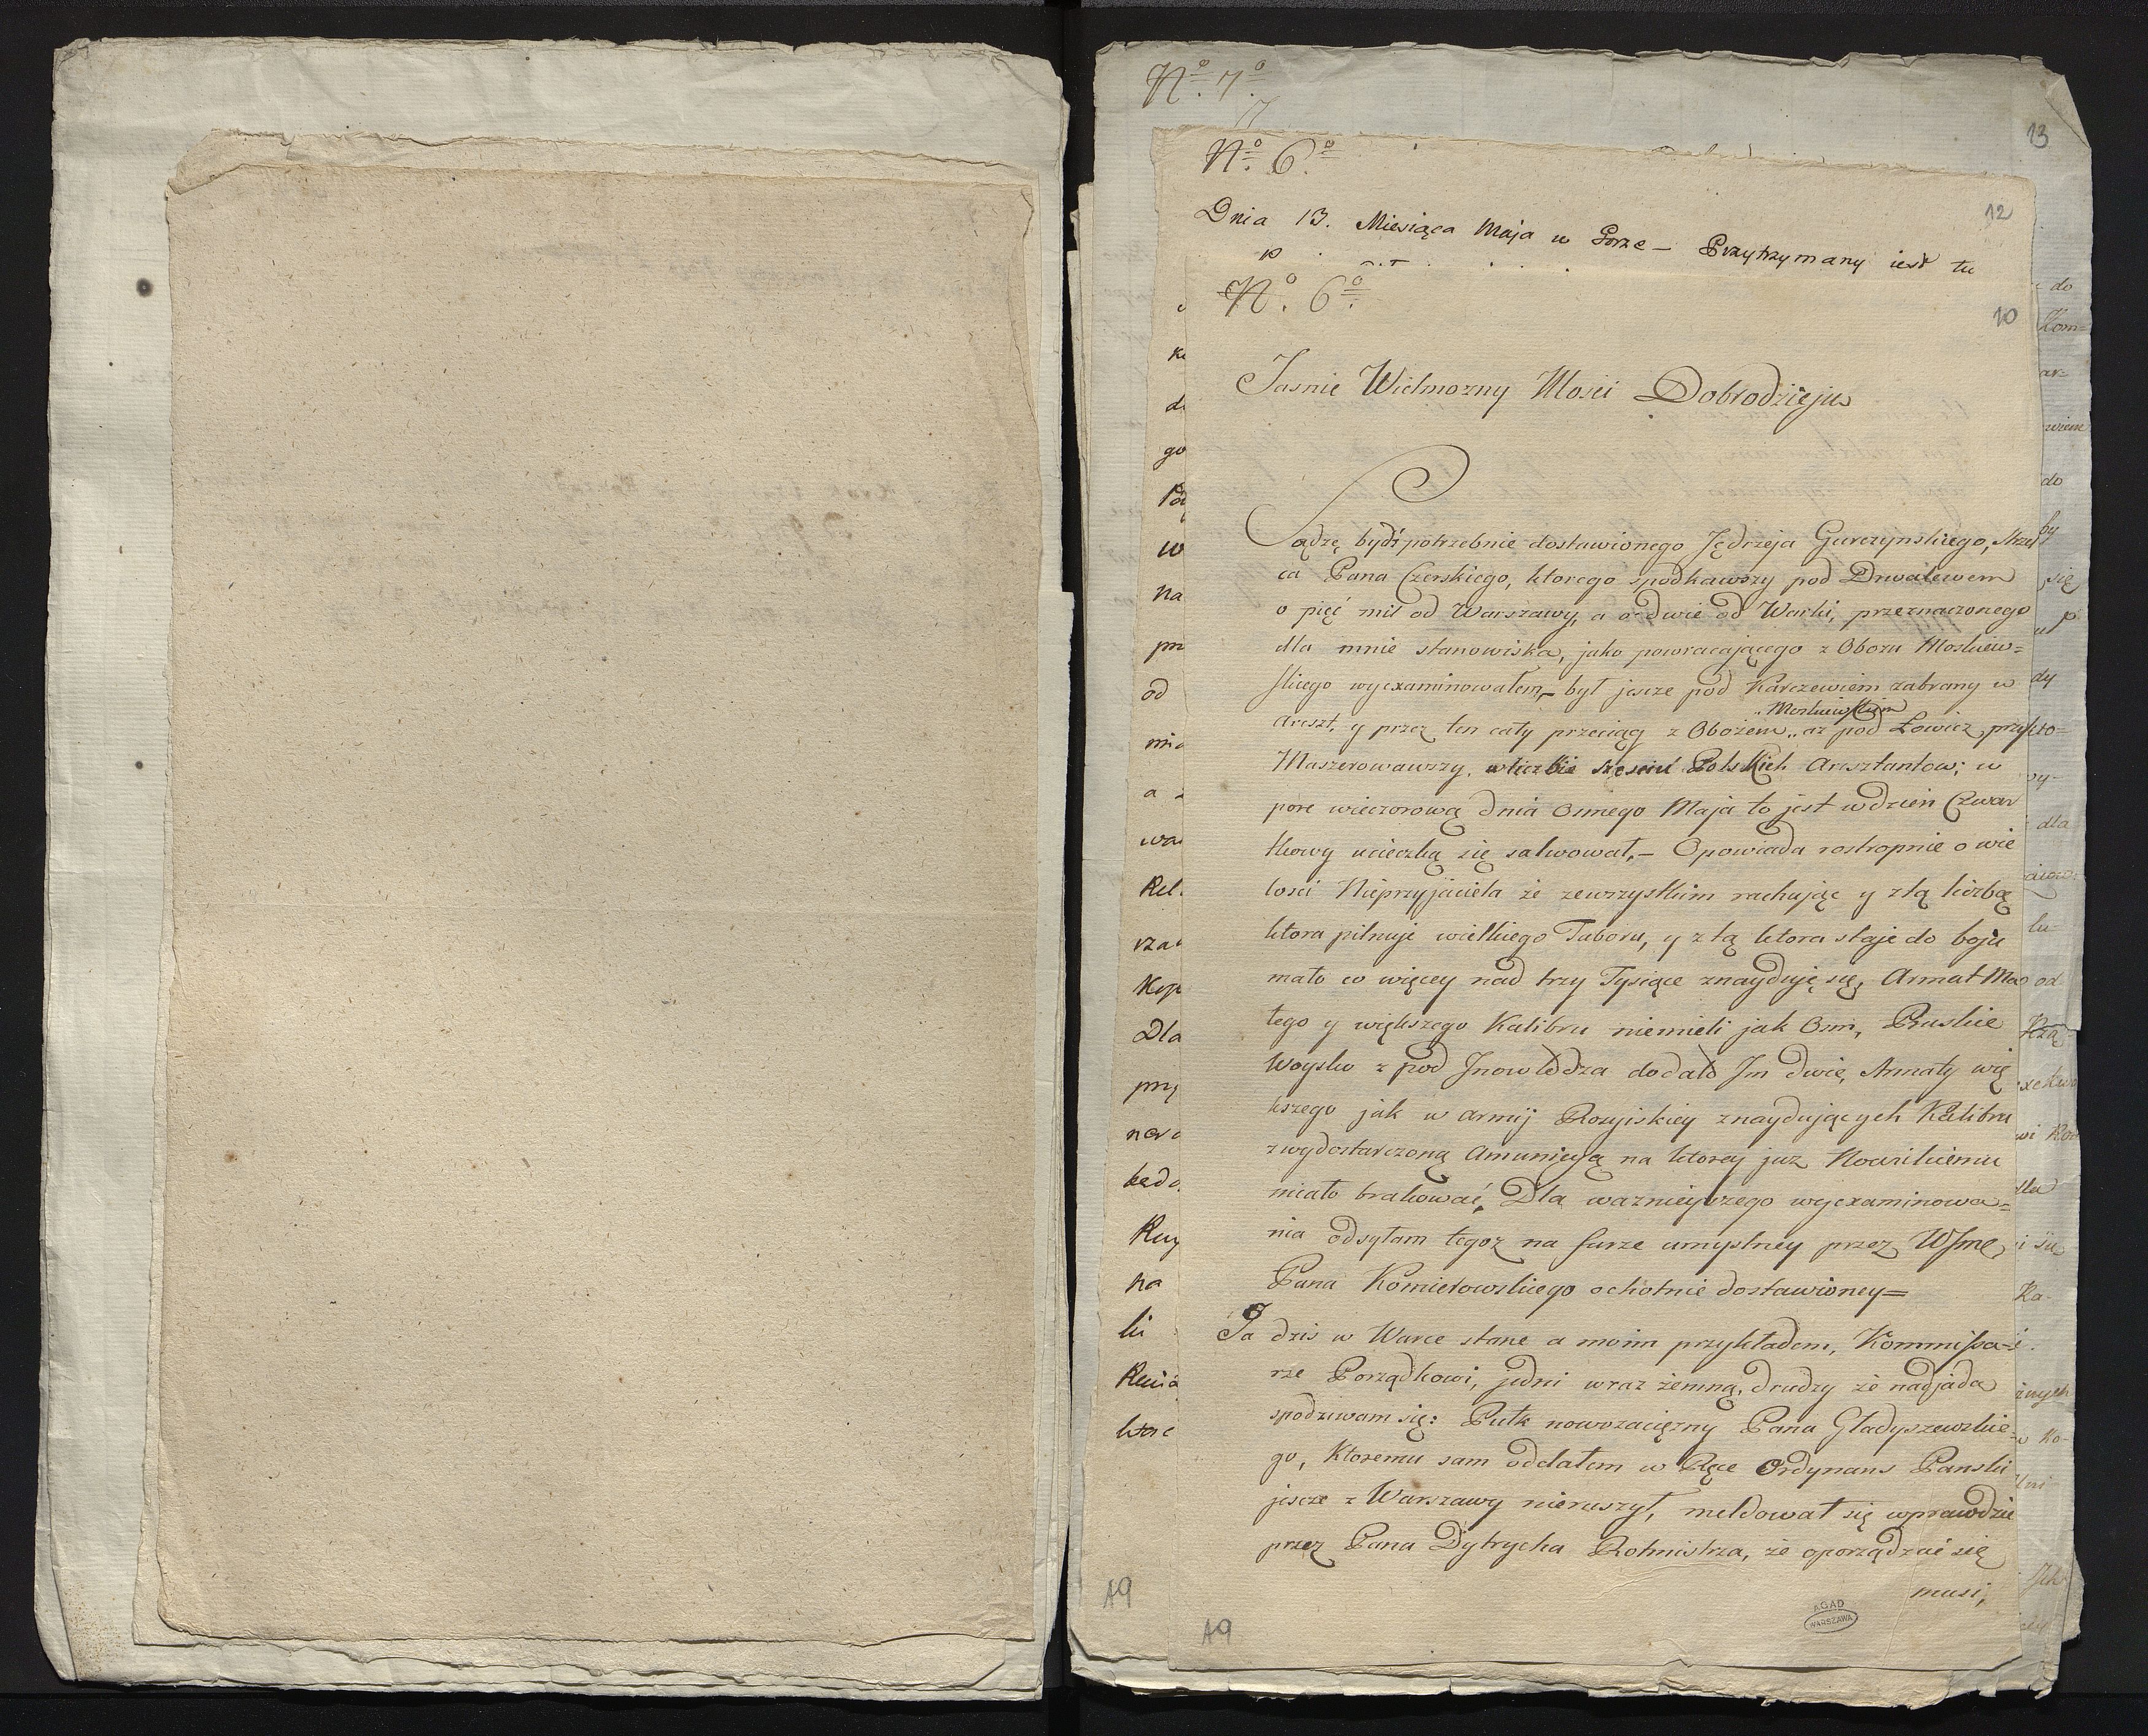 Nº. 7º.
13
Nº. 6º.
12
Dnia 13. Miesiąca Maja w Gorze – Przytrzymany iest tu
Nº. 6º.
10
Jasnie Wielmozny Mosci Dobrodzieju
Sądzę bydź potrzebnie dostawionego Jędrzeja Gurczynskiego, Strzel
ca Pana Czerskiego, ktorego spodkawszy pod Drwalewem
o pięć mil od Warszawy, a o dwie od Warki, przeznaczonego
dla mnie stanowiska, jako powracającego z Obozu Moskiew=
skiego wyexaminowałem, – był jescze pod Karczewiem zabrany w
Areszt, y przez ten cały przeciąg z Obozem „ Moskiewskim „ az pod Łowicz przy
Maszerowawszy, w liczbie szesciu Polskich Aresztantow; w
pore wieczorową dnia Osmego Maja to jest w dzien Czwar
tkowy ucieczką się salwował, – Opowiada rostropnie o wie
losci Nieprzyjaciela że zewrzystkim rachując y z tą liczbą
ktora pilnuje wielkiego Taboru, y z tą ktora staje do boju
mało co więcey nad trzy Tysiące znayduję się, Armat Ma
łego y większego Kalibru niemieli jak Osm, Pruskie
Woysko z pod Inowłodza dodało Im dwie, Armaty wię
kszego jak w Armij Rossyiskiey znaydujących Kalibru
z wydostarczoną Amunicyą na ktorey juz Nowickiemu
miało brakować, Dla waznieyszego wyexaminowa=
nia odsyłam tegoz na furze umyslney przez WJmc
Pana Komierowskiego ochotnie dostawioney=
Ja dzis w Warce stane a moim przykładem, Kommissa-
rze Porządkowi, jedni wraz zemną, drudzy że nadjada
spodziwam się: Pułk nowozaciężny Pana Gładyszewskie-
go, Ktoremu sam oddałem w Ręce Ordynans Panski
jescze z Warszawy nieruszył, meldował się wprawdzie
przez Pana Dytrycha Rotmistrza, że oporządzać się
musi;
A9
A9
AGAD
WARSZAWA